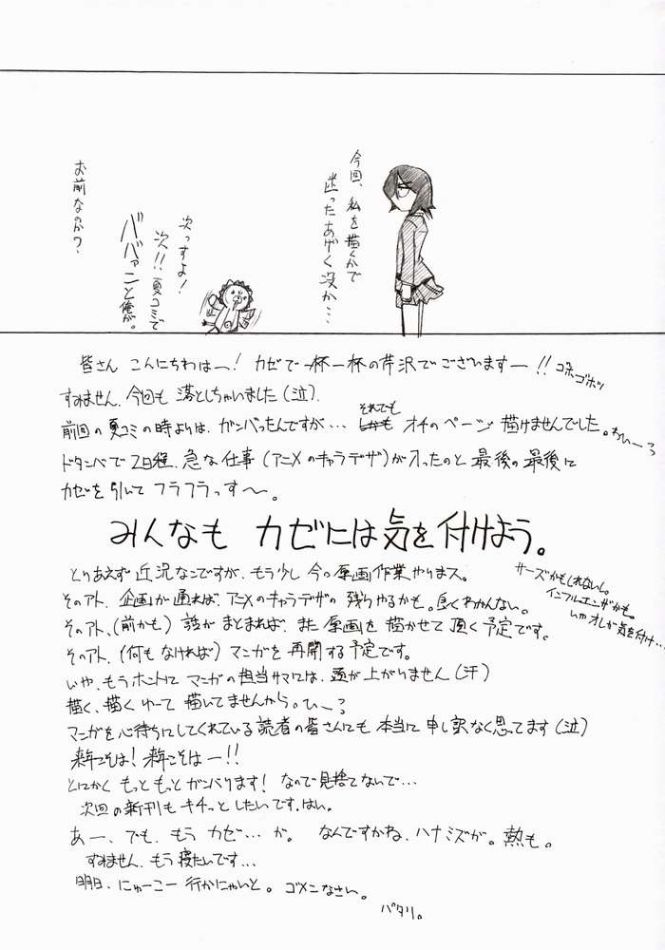 今回、私を描くかで
迷ったあげく没か…
次っすよ!
次!!夏コミで
ババァンと俺が。
お前なのか?
皆さん こんにちわはー! カゼで一杯一杯の芹沢でございますー!! ゴホゴホッ
すみません、今回も 落としちゃいました(泣)
前回の夏コミの時よりは、ガンバったんですが… それでも オチのページ 描けませんでした。わひー〜?
ドタンバで 2日程、急な仕事(アニメのキャラデザ)が入ったのと 最後の最後に
カゼを引いて フラフラっす〜。
みんなも カゼには気を付けよう。
サーズかもしれないし。
インフルエンザかも。
いや オレが気を付け…
とりあえず 近況なんですが、もう少し 今の原画作業やりまス。
そのアト、企画が通れば、アニメのキャラデザの 残りやるかも。良くわかんない。
そのアト、(前かも) 話が まとまれば、また 原画を 描かせて 頂く予定です。
そのアト、(何もなければ) マンガを 再開する予定です。
いや、もうホントに マンガの担当サマには、頭が上がりません(汗)
描く、描く ゆーて 描いてませんから。ひ〜?
マンガを心待ちにしてくれている読者の皆さんにも 本当に 申し訳なく思ってます(泣)
来年こそは! 来年こそはー!!
とにかく もっともっと ガンバリます! なので 見捨てないで…
次回の新刊も キチッと したいです、はい。
あー、でも、もう カゼ… が。 なんですかね、ハナミズが。熱も。
すみません、もう 寝たいです…
明日、にゅーこー 行かにゃいと。 ゴメンなさい。
パタリ。